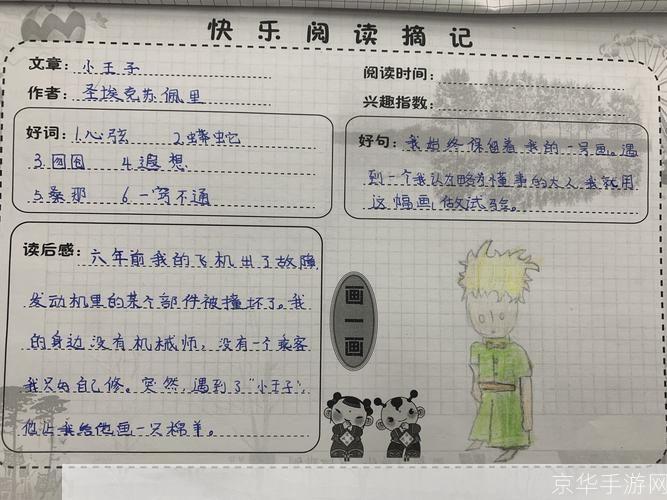 快乐阅读摘记
文章：小王子
阅读时间：
作者：圣埃克苏佩里
兴趣指数：
好词：1.心弦 2.蟒蛇
3.囫囵 4.遐想
5.桑那 6.一窍不通
好句：我始终保留着我的一号画。遇
到一个我认为略为懂事的大人，我就用
这幅画做试验。
读后感：六年前我的飞机出了故障，
发动机里的某个部件被撞坏了。我
的身边没有机械师，没有一个乘客
我只好自己修。突然，遇到了“小王子”，
他让我给他画一只棉羊。
画一画
京华手游网